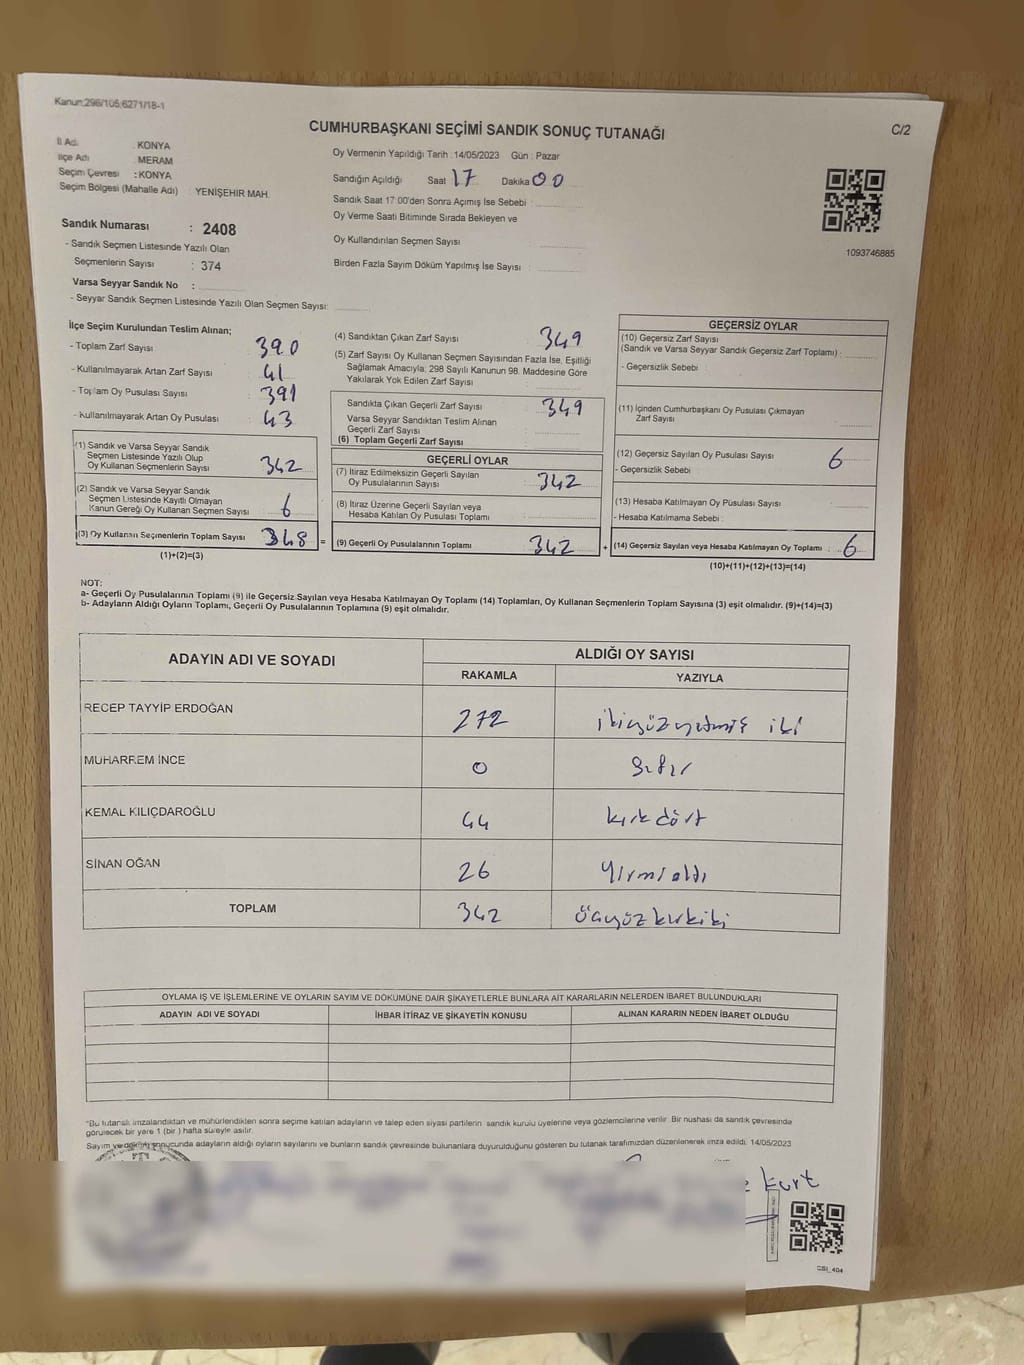 Kanun;296/105;6271/18-1
CUMHURBAŞKANI SEÇİMİ SANDIK SONUÇ TUTANAĞI
C/2
İl Adı : KONYA
İlçe Adı : MERAM
Seçim Çevresi : KONYA
Seçim Bölgesi (Mahalle Adı) : YENİŞEHİR MAH.
Oy Vermenin Yapıldığı Tarih : 14/05/2023 Gün : Pazar
Sandığın Açıldığı Saat 17 Dakika 00
Sandık Saat 17 00'den Sonra Açımış İse Sebebi :
Oy Verme Saati Bitiminde Sırada Bekleyen ve
Oy Kullandırılan Seçmen Sayısı
Birden Fazla Sayım Döküm Yapılmış İse Sayısı :
1093746885
Sandık Numarası : 2408
- Sandık Seçmen Listesinde Yazılı Olan
Seçmenlerin Sayısı : 374
Varsa Seyyar Sandık No :
- Seyyar Sandık Seçmen Listesinde Yazılı Olan Seçmen Sayısı:
İlçe Seçim Kurulundan Teslim Alınan;
- Toplam Zarf Sayısı 390
- Kullanılmayarak Artan Zarf Sayısı 41
- Toplam Oy Pusulası Sayısı 391
- Kullanılmayarak Artan Oy Pusulası 43
(1) Sandık ve Varsa Seyyar Sandık
Seçmen Listesinde Yazılı Olup
Oy Kullanan Seçmenlerin Sayısı 342
(2) Sandık ve Varsa Seyyar Sandık
Seçmen Listesinde Kayıtlı Olmayan
Kanun Gereği Oy Kullanan Seçmen Sayısı 6
(3) Oy Kullanan Seçmenlerin Toplam Sayısı 348 =
(1)+(2)=(3)
(4) Sandıktan Çıkan Zarf Sayısı 349
(5) Zarf Sayısı Oy Kullanan Seçmen Sayısından Fazla İse, Eşitliği
Sağlamak Amacıyla; 298 Sayılı Kanunun 98. Maddesine Göre
Yakılarak Yok Edilen Zarf Sayısı
Sandıkta Çıkan Geçerli Zarf Sayısı 349
Varsa Seyyar Sandıktan Teslim Alınan
Geçerli Zarf Sayısı
(6) Toplam Geçerli Zarf Sayısı
GEÇERLİ OYLAR
(7) İtiraz Edilmeksizin Geçerli Sayılan
Oy Pusulalarının Sayısı 342
(8) İtiraz Üzerine Geçerli Sayılan veya
Hesaba Katılan Oy Pusulası Toplamı
(9) Geçerli Oy Pusulalarının Toplamı 342 +
GEÇERSİZ OYLAR
(10) Geçersiz Zarf Sayısı
(Sandık ve Varsa Seyyar Sandık Geçersiz Zarf Toplamı) :
- Geçersizlik Sebebi :
(11) İçinden Cumhurbaşkanı Oy Pusulası Çıkmayan
Zarf Sayısı
(12) Geçersiz Sayılan Oy Pusulası Sayısı 6
- Geçersizlik Sebebi :
(13) Hesaba Katılmayan Oy Pusulası Sayısı
- Hesaba Katılmama Sebebi :
(14) Geçersiz Sayılan veya Hesaba Katılmayan Oy Toplamı : 6
(10)+(11)+(12)+(13)=(14)
NOT:
a- Geçerli Oy Pusulalarının Toplamı (9) ile Geçersiz Sayılan veya Hesaba Katılmayan Oy Toplamı (14) Toplamları, Oy Kullanan Seçmenlerin Toplam Sayısına (3) eşit olmalıdır. (9)+(14)=(3)
b- Adayların Aldığı Oyların Toplamı, Geçerli Oy Pusulalarının Toplamına (9) eşit olmalıdır.
ADAYIN ADI VE SOYADI
ALDIĞI OY SAYISI
RAKAMLA YAZIYLA
RECEP TAYYİP ERDOĞAN 272 ikiyüzyetmiş iki
MUHARREM İNCE 0 Sıfır
KEMAL KILIÇDAROĞLU 44 kırkdört
SİNAN OĞAN 26 Yirmialtı
TOPLAM 342 üçyüzkırkiki
OYLAMA İŞ VE İŞLEMLERİNE VE OYLARIN SAYIM VE DÖKÜMÜNE DAİR ŞİKAYETLERLE BUNLARA AİT KARARLARIN NELERDEN İBARET BULUNDUKLARI
ADAYIN ADI VE SOYADI İHBAR İTİRAZ VE ŞİKAYETİN KONUSU ALINAN KARARIN NEDEN İBARET OLDUĞU
*Bu tutanak imzalandıktan ve mühürlendikten sonra seçime katılan adayların ve talep eden siyasi partilerin sandık kurulu üyelerine veya gözlemcilerine verilir. Bir nushası da sandık çevresinde
görülecek bir yere 1 (bir ) hafta süreyle asılır.
Sayım ve döküm sonucunda adayların aldığı oyların sayılarını ve bunların sandık çevresinde bulunanlara duyurulduğunu gösteren bu tutanak tarafımızdan düzenlenerek imza edildi. 14/05/2023
kurt